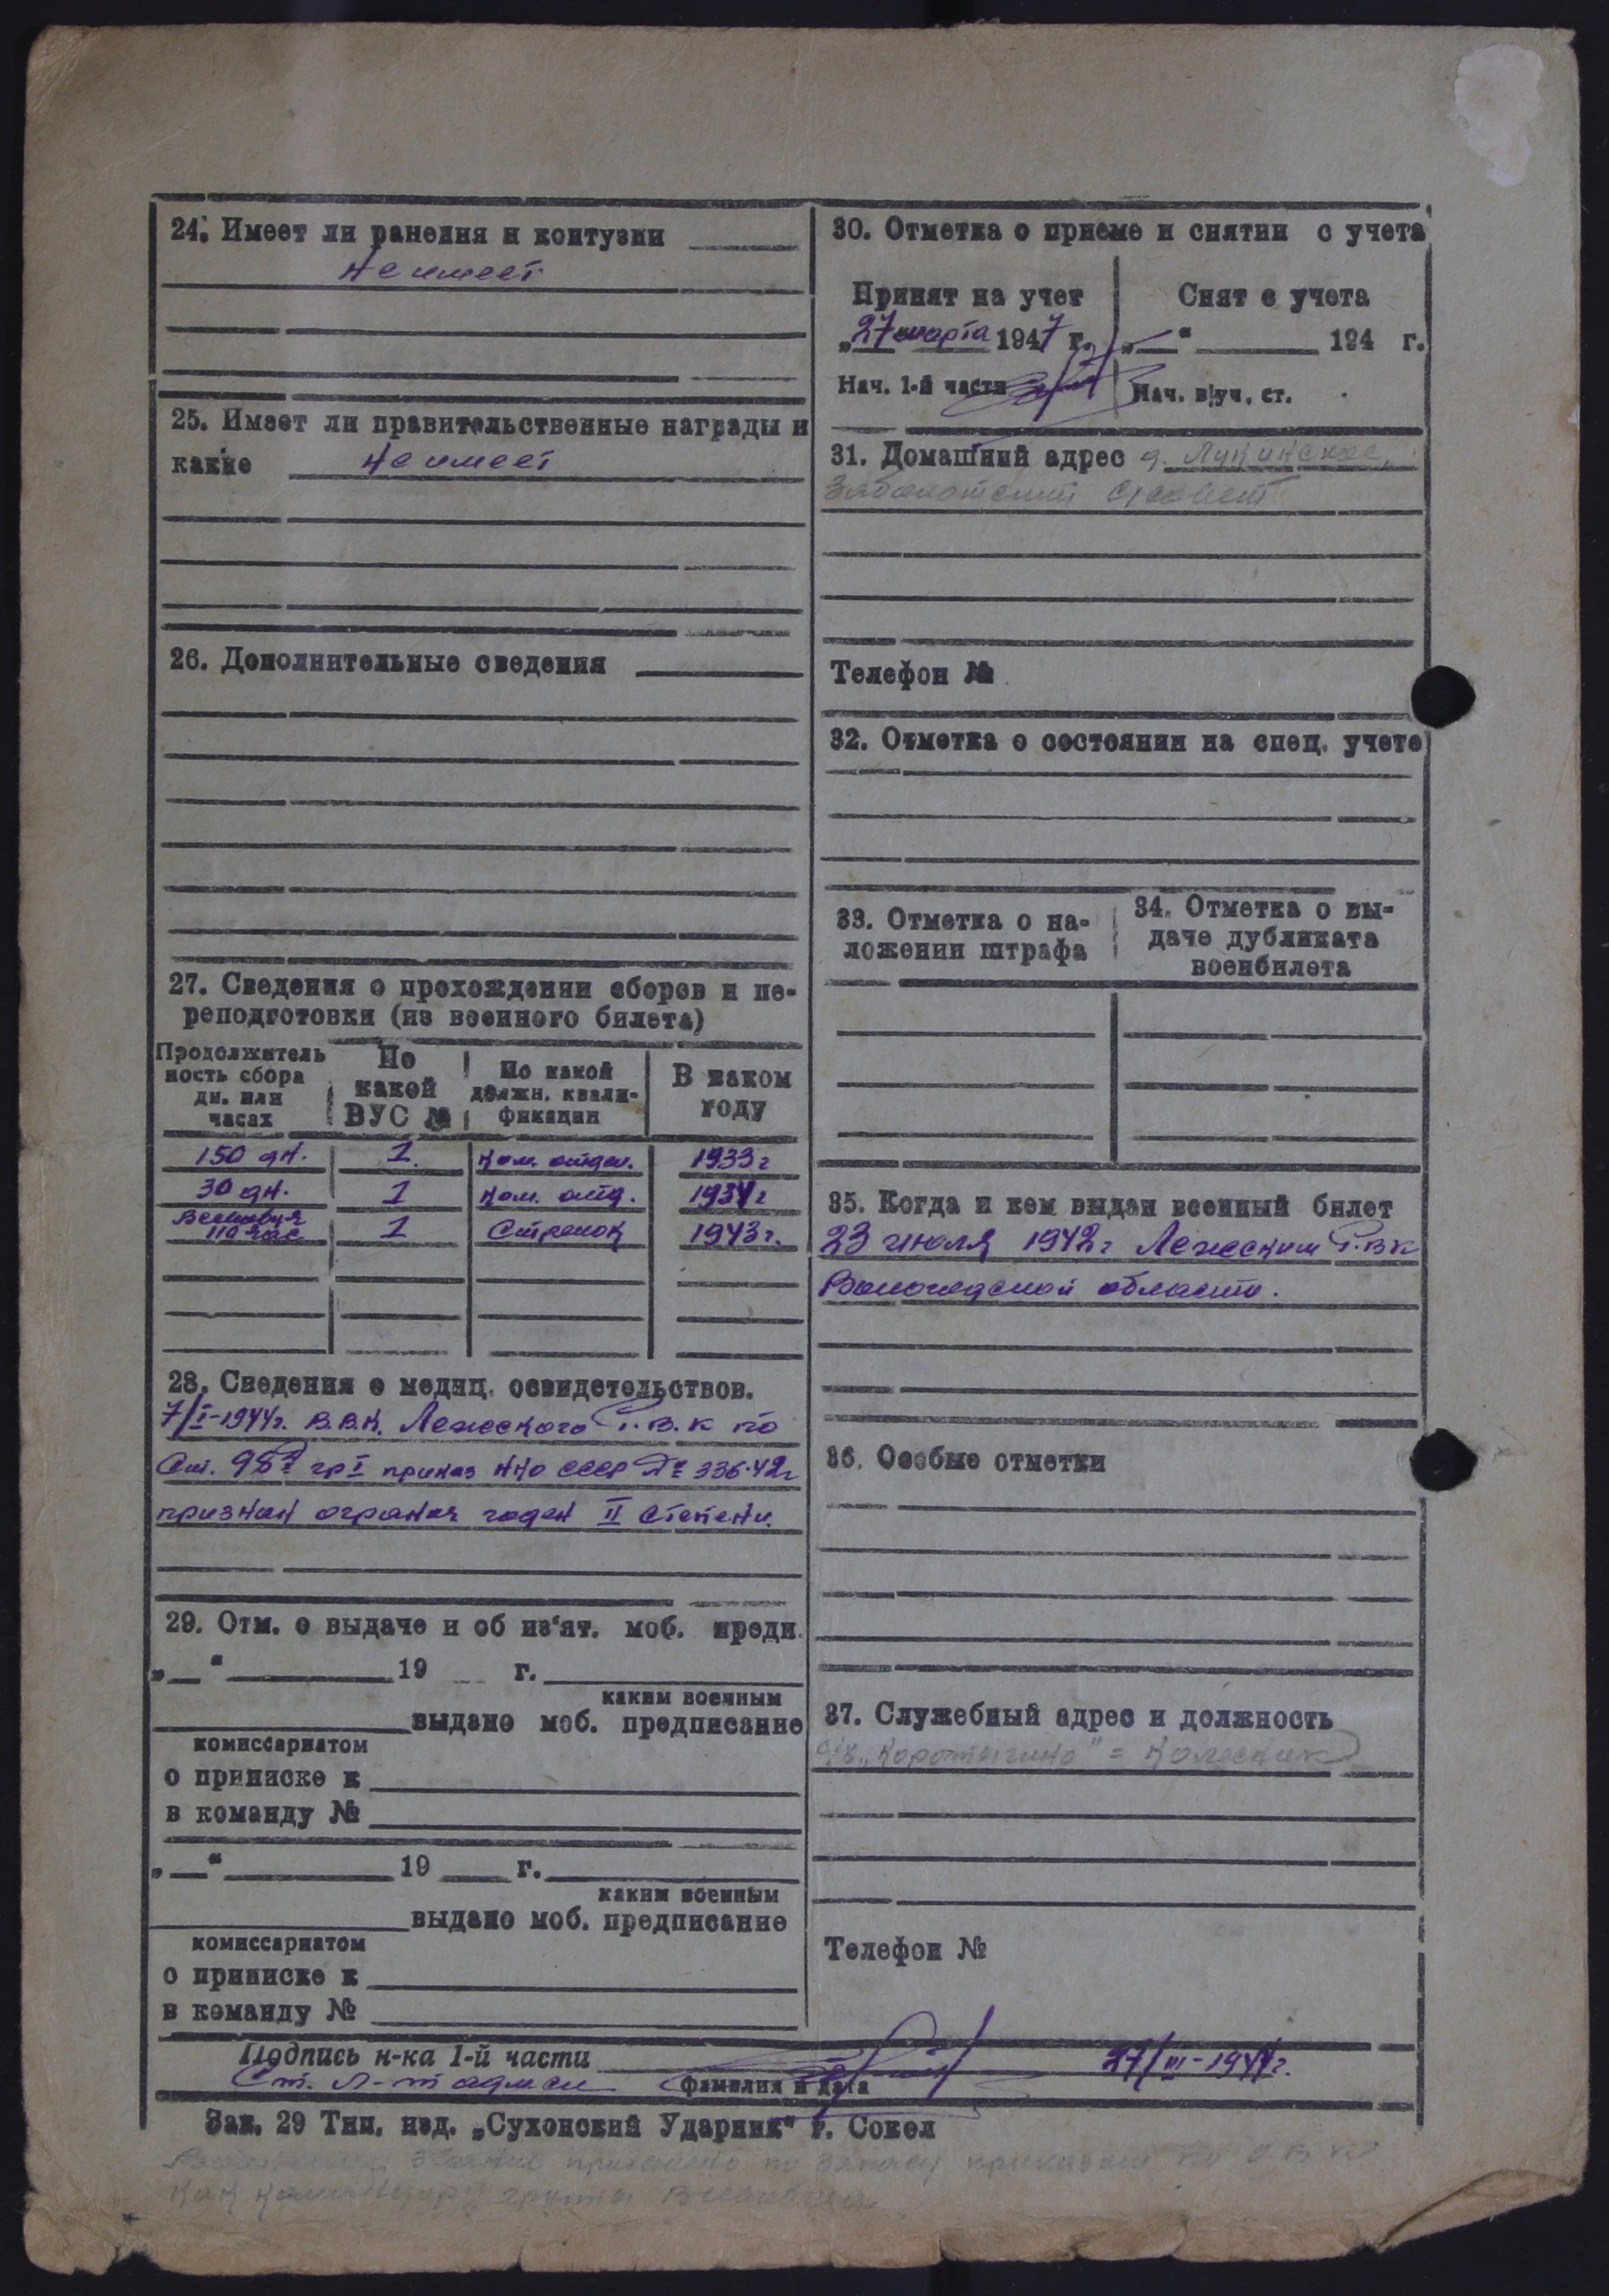 24. Имеет ли ранения и контузии
Не имеет
25. Имеет ли правительственные награды и
какие Не имеет
26. Дополнительные сведения
27. Сведения о прохождении сборов и пе-
реподготовки (из военного билета)
Продолжитель
ность сбора
дн. или
часах
По
какой
ВУС №
По какой
должн. квали-
фикации
В каком
году
150 дн. 1. Ком. отдел. 1933 г
30 дн. 1 Ком. отд. 1934 г
Всевобуч
110 час 1 Стрелок 1943 г.
28. Сведения о медиц. освидетельствов.
7/I-1944г. В.В.К. Лежского Р.В.К по
Ст. 98 гр I приказ НКО СССР № 336-42г
признан огранич годен II степени.
29. Отм. о выдаче и об из'ят. моб. предп.
„ “ 19 г.
каким военным
выдано моб. предписание
комиссариатом
о приписке к
в команду №
„ “ 19 г.
каким военным
выдано моб. предписание
комиссариатом
о приписке к
в команду №
30. Отметка о приеме и снятии с учета
Принят на учет
„27 марта 1947 г.
Нач. 1-й части
Снят с учета
„ “ 194 г.
Нач. в/уч. ст.
31. Домашний адрес д. Лукинское,
Заболотский с/совет
Телефон №
32. Отметка о состоянии на спец. учете
33. Отметка о на-
ложении штрафа
34. Отметка о вы-
даче дубликата
военбилета
35. Когда и кем выдан военный билет
23 июля 1942 г Лежским Р.В К
Вологодской области.
36. Особые отметки
37. Служебный адрес и должность
„Коротыгино" =
Телефон №
Подпись н-ка 1-й части
Ст. л-т адм сл 27/III-1947г.
фамилия и дата
Зак. 29 Тип. изд. „Сухонский Ударник" г. Сокол
звание присвоено по приказом
Как командиру группы Всевобуча.